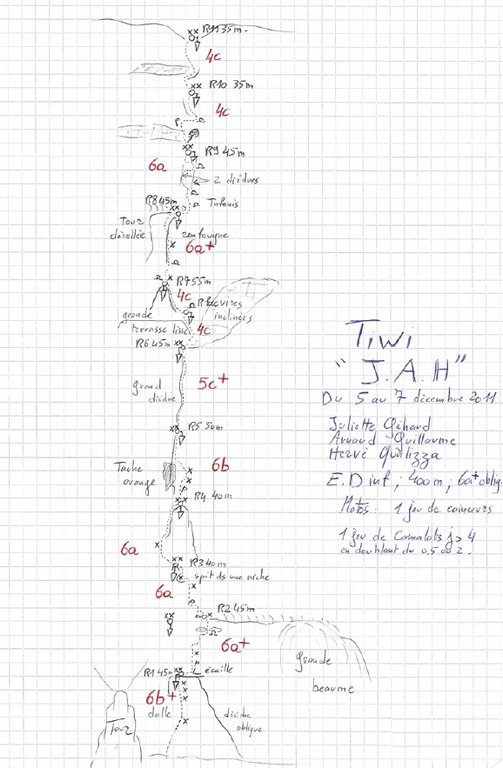 R11 35m
4c
R10 35m
4c
R9 45m
6a
2 dièdres
R8 45m
Tafonis
Tour
décollée
renfougne
6a+
R7 55m
4c
grande
terrasse
inclinées
4c
R6 45m
5c+
grand
dièdre
R5 50m
Tache
orange
6b
R4 40m
6a
R3 40m
spit ds une niche
6a
R2 45m
6a+
R1 45m
écaille
6b+
dalle
dièdre
oblique
Tour
grande
beaume
Tiwi
"J.A.H"
Du 5 au 7 décembre 2011
Juliette Géhard
Arnaud Guillaume
Hervé Qualizza
E.D inf, 400m, 6a+ oblig
Matos: 1 jeu de coinceurs
1 jeu de Camalots j> 4
en doublant du 0,5 au 2.